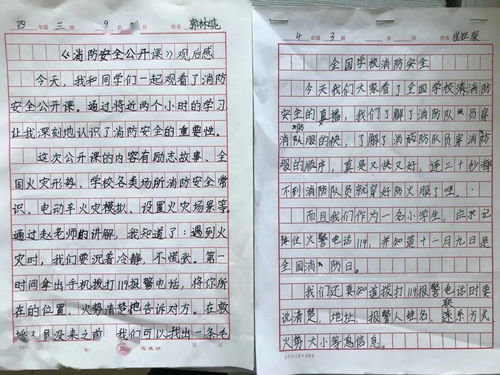 四 三 9
《消防安全公开课》观后感
今天，我和同学们一起观看了消防
安全公开课。通过将近两个小时的学习，
让我深刻地认识了消防安全的重要性。
这次公开课的内容有励志故事、全
国火灾形势、学校各类场所消防安全常
识、电动车火灾模拟、设置火灾场景等。
通过赵老师的讲解，我知道了：遇到火
灾时，我们要沉着冷静，不慌张。第一
时间拿出手机拨打119报警电话，将你所
在的位置、火势清楚地告诉对方。在救
人员没来之前 我们可以找出一条毛
4 年级 3 班
全国学校消防安全
今天我们大家看了全国学校消防
安全的直播，我们了解了消防队员穿
消防服的快，了解了消防队员穿消防
服的顺序，真是又快又好，连三十秒都
不到消防队员就穿好防火服了嘿。
而且我们作为一名小学生，应牢记
火警电话119，并知道十一月九日是
全国消防日。
我们还要知道拨打119报警电话时要
说清楚，地址、报警人姓名、联系方式
火势大小等高信息。